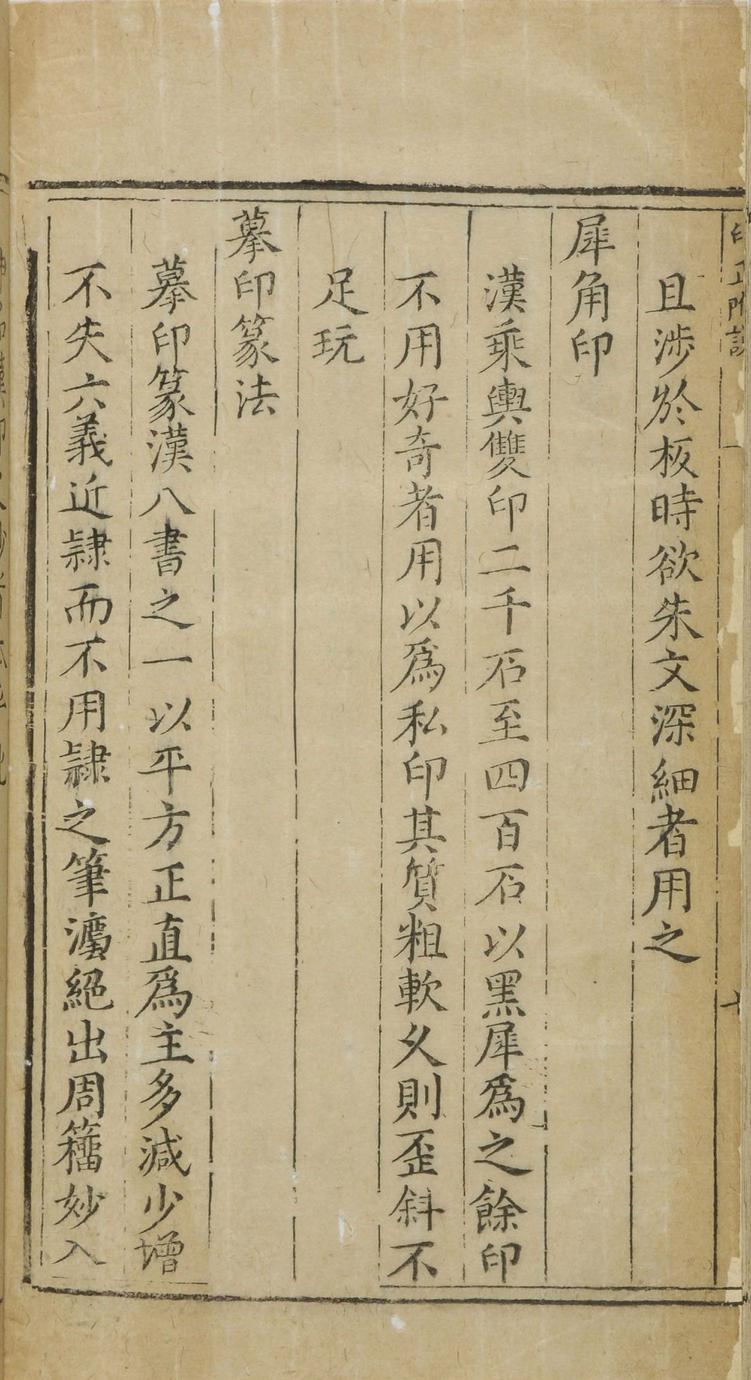 且涉於板時欲朱文深細者用之
犀角印
漢乘輿雙印二千石至四百石以黑犀爲之餘印
不用好奇者用以爲私印其質粗軟久則歪斜不
足玩
摹印篆法
摹印篆漢八書之一以平方正直爲主多減少增
不失六義近隸而不用隸之筆灋絕出周籀妙入